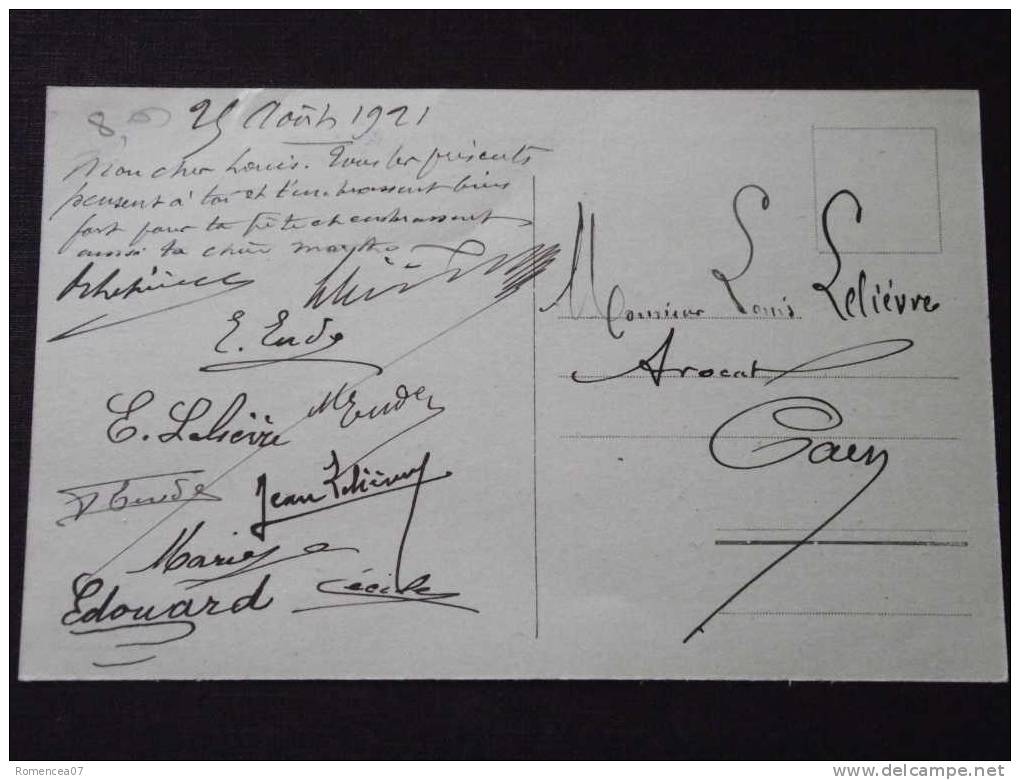 25 Août 1921
Mon cher Louis. Tous les présents
pensent à toi et t'embrassent bien
fort pour ta fête et embrassent
aussi ta chère
E. Eude
E. Lelièvre
M Eude
Eude
Jean Lelièvre
Marie
Edouard
Cécile
Monsieur Louis Lelièvre
Avocat
Caen
Romencea07
http://www.delcampe.net